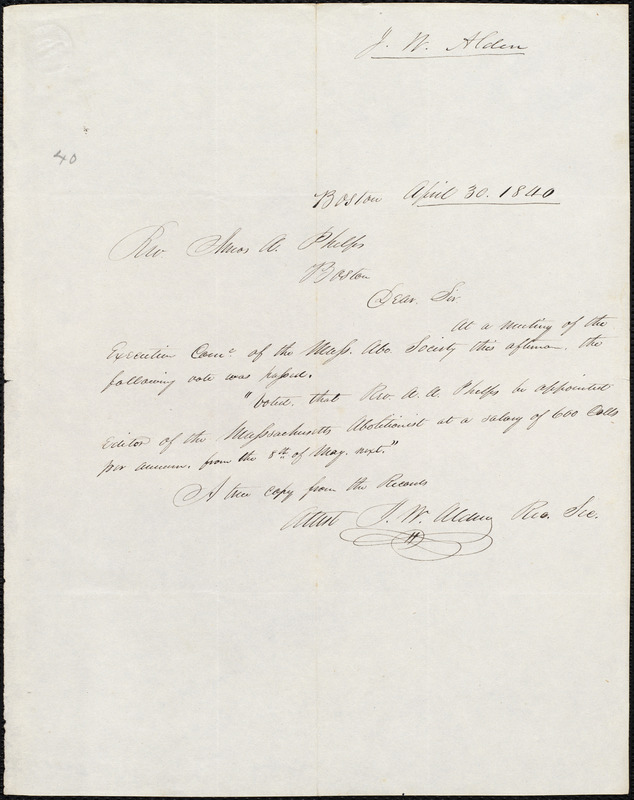 J. W. Alden
40
Boston April 30. 1840
Rev. Amos A. Phelps
Boston
Dear Sir
At a meeting of the
Executive Com.e of the Mass. Abo. Society this afternoon. the
following vote was passed.
"Voted. that Rev. A. A. Phelps be appointed
Editor of the Massachusetts Abolitionist at a salary of 600 Dolls
per annum. from the 8th of May. next."
A true copy from the Records
Attest J. W. Alden Rec. Sec.